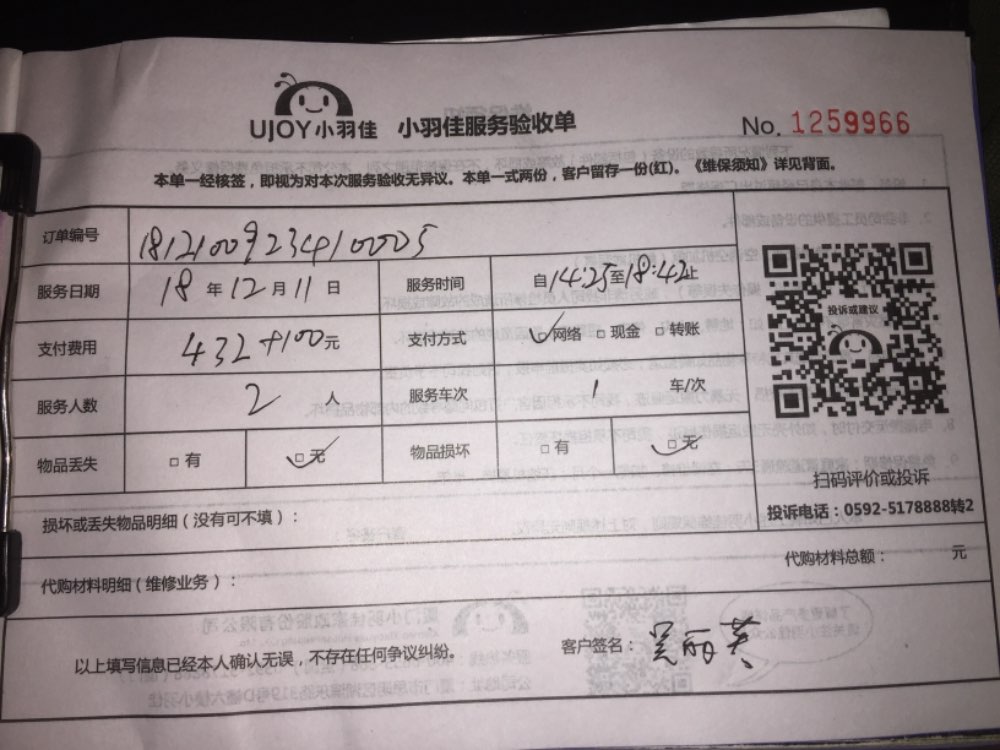 UJOY小羽佳 小羽佳服务验收单 No. 1259966
本单一经核签，即视为对本次服务验收无异议。本单一式两份，客户留存一份(红)。《维保须知》详见背面。
订单编号 18121009234100005
服务日期 18 年 12 月 11 日 服务时间 自14:25至18:42止
支付费用 432+100元 支付方式 网络 现金 转账
投诉或建议
服务人数 2 人 服务车次 1 车/次
物品丢失 有 无 物品损坏 有 无
扫码评价或投诉
投诉电话：0592-5178888转2
损坏或丢失物品明细（没有可不填）：
代购材料明细（维修业务）： 代购材料总额： 元
以上填写信息已经本人确认无误，不存在任何争议纠纷。 客户签名：吴丽英